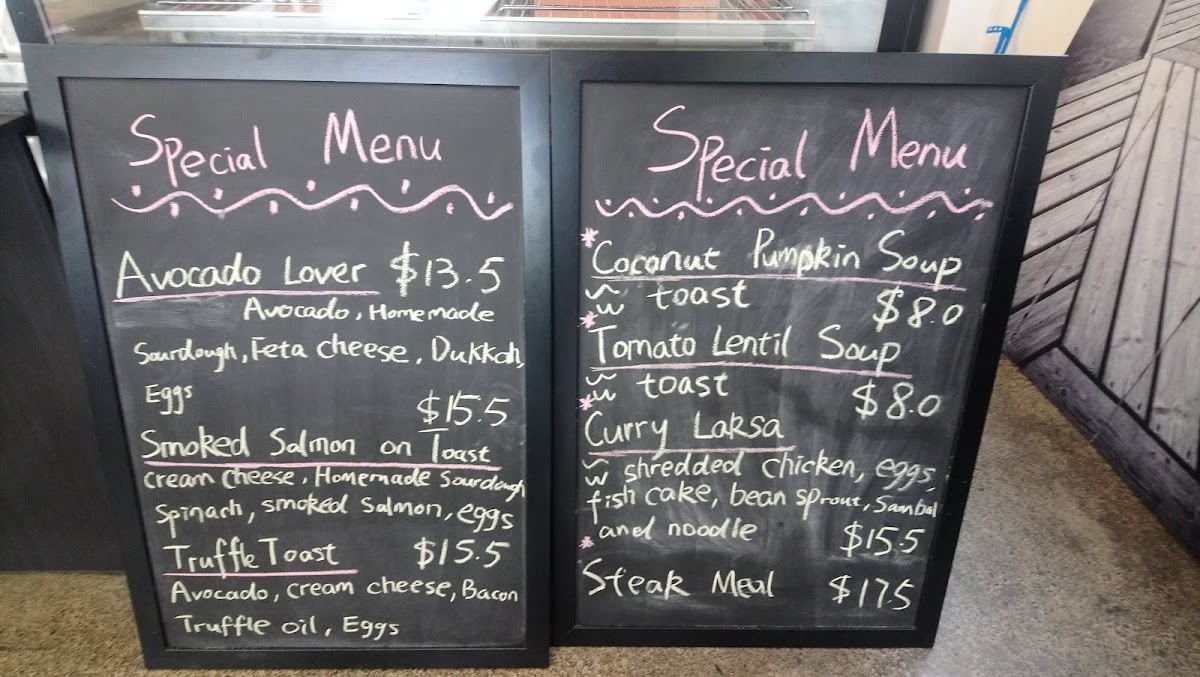 Special Menu
Avocado Lover $13.5
Avocado, Homemade
Sourdough, Feta cheese, Dukkah,
Eggs
$15.5
Smoked Salmon on Toast
cream cheese, Homemade Sourdough
Spinach, smoked Salmon, eggs
Truffle Toast $15.5
Avocado, cream cheese, Bacon
Truffle oil, Eggs
Special Menu
*Coconut Pumpkin Soup
w toast $8.0
*Tomato Lentil Soup
w toast $8.0
*Curry Laksa
w shredded chicken, eggs,
fish cake, bean sprout, Sambal
and noodle $15.5
*Steak Meal $17.5